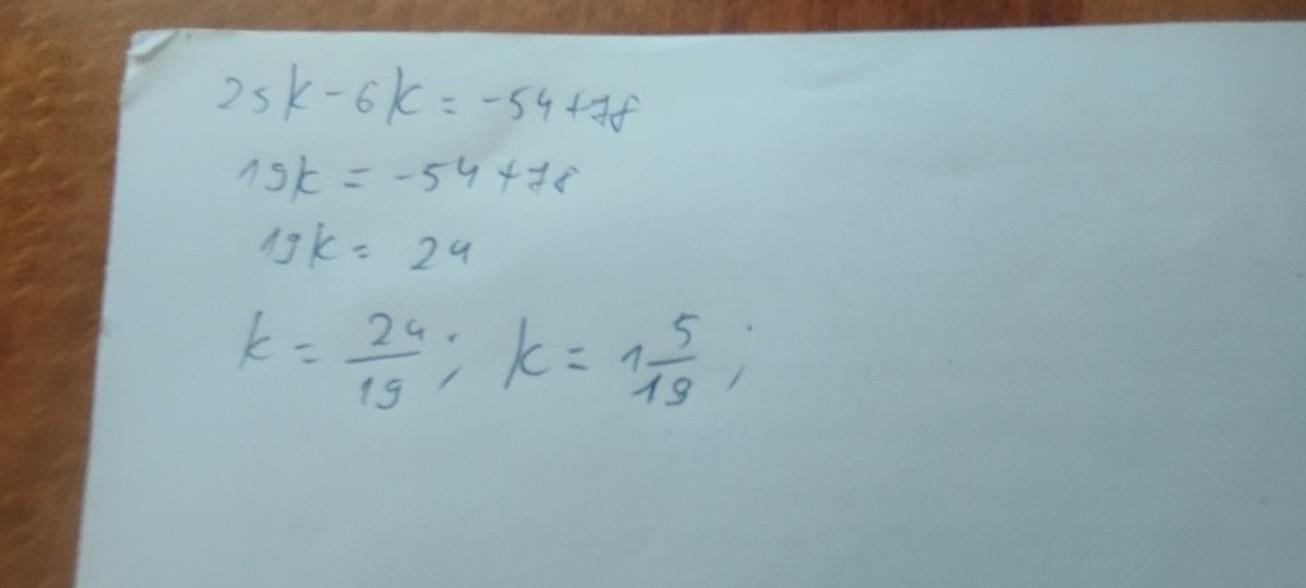 25k-6k=-54+78
19k=-54+78
19k=24
k=24/19; k=1 5/19;